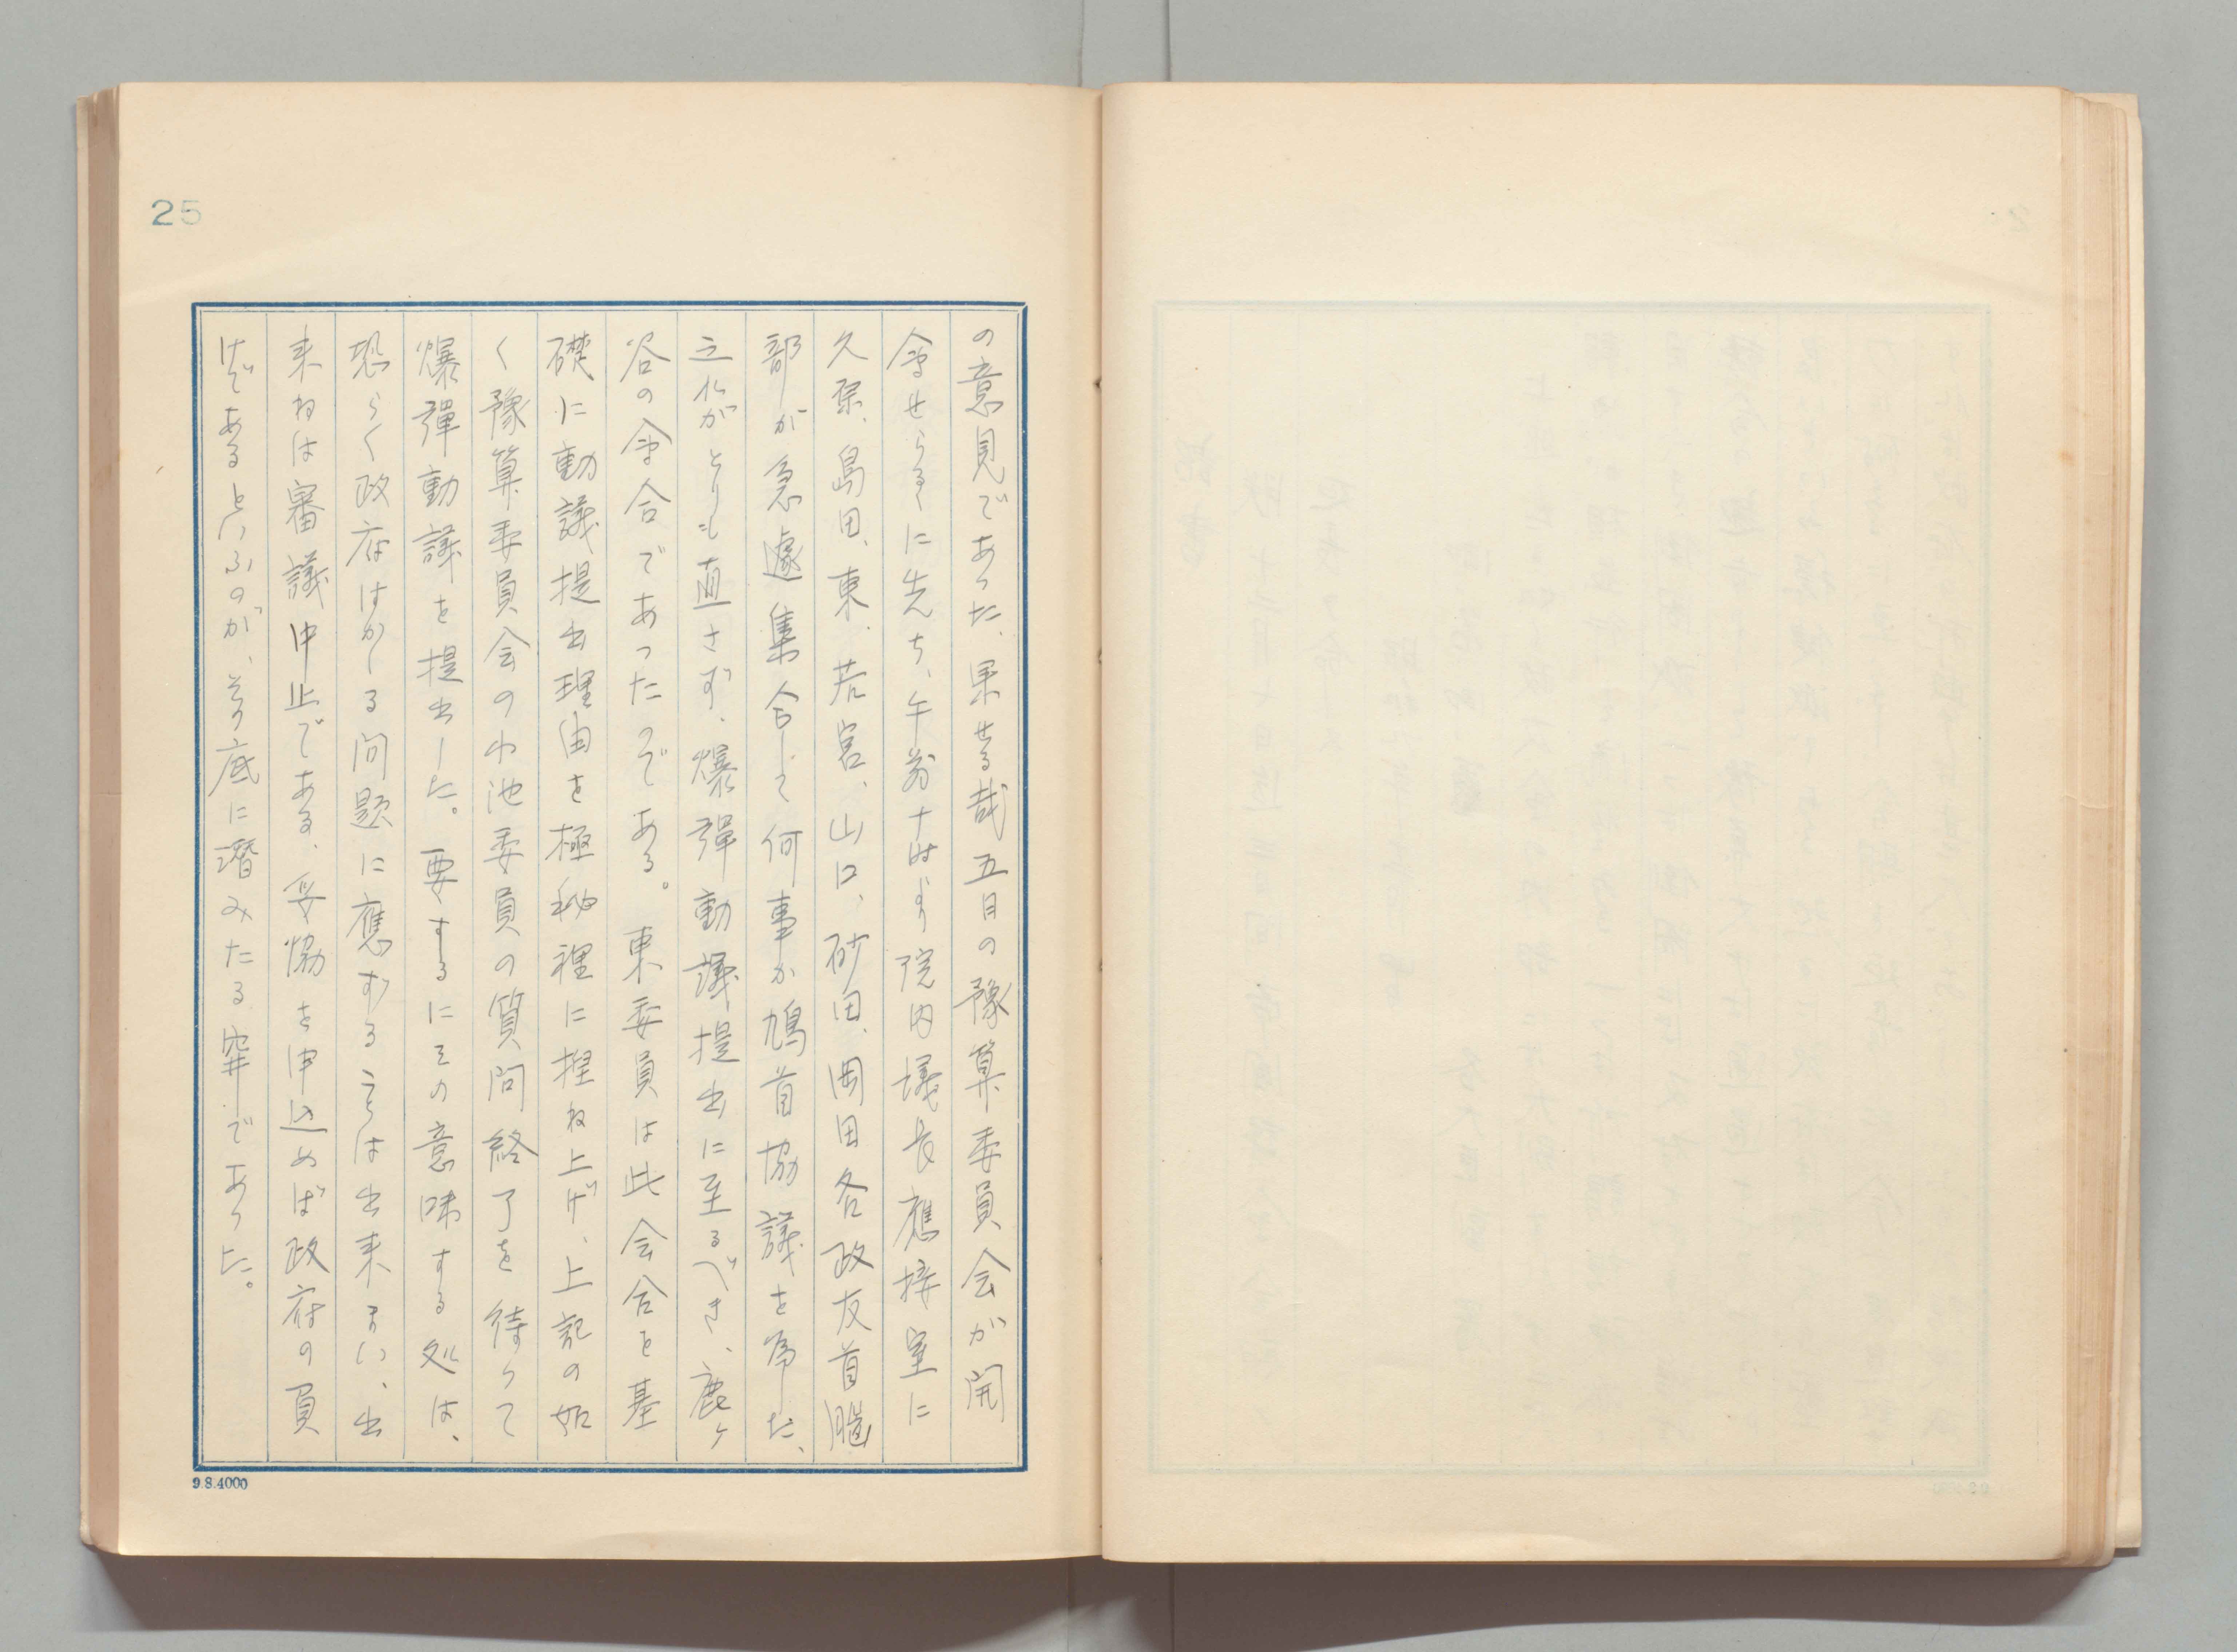 25
の意見であった、果せる哉五日の豫算委員会が開
會せらるゝに先ち、午前十時より院内議長應接室に
久原、島田、東、若宮、山口、砂田、岡田各政友首脳
部が急遽集合して何事か鳩首協議を為した、
之れがとりも直さず、爆彈動議提出に至るべき、鹿ヶ
谷の會合であったのである。東委員は此会合を基
礎に動議提出理由を極秘裡に捏ね上げ、上記の如
く豫算委員会の小池委員の質問終了を待つて
爆彈動議を提出した。要するにその意味する処は、
恐らく政府はかゝる問題に應ずることは出来まい、出
来ねは審議中止である、妥協を申込めば政府の負
けであるといふのが、その底に潜みたる穽であった。
9.8.4000